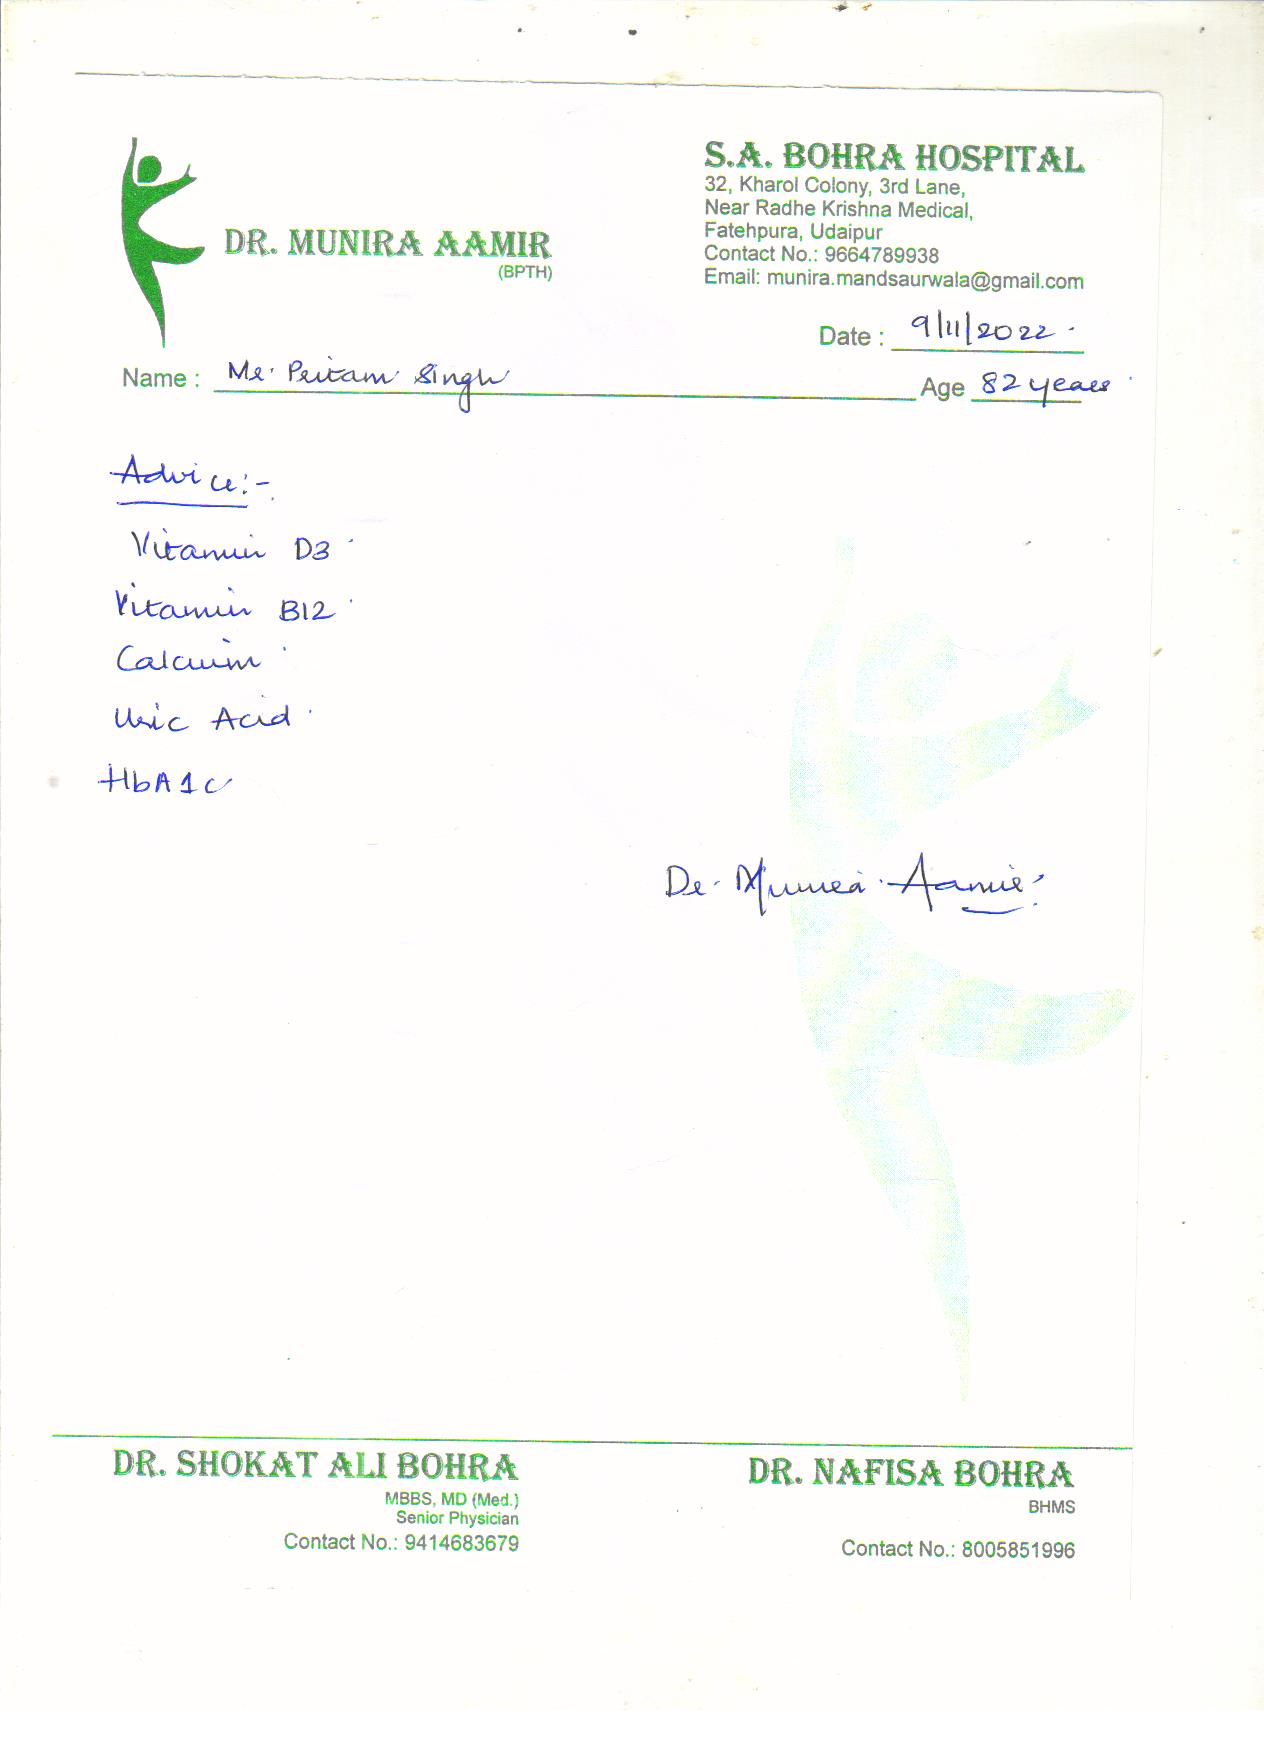 S.A. BOHRA HOSPITAL
32, Kharol Colony, 3rd Lane,
Near Radhe Krishna Medical,
Fatehpura, Udaipur
Contact No.: 9664789938
Email: munira.mandsaurwala@gmail.com
DR. MUNIRA AAMIR
(BPTH)
Date : 9/11/2022
Name : Mr. Pritam Singh
Age 82 years
Advice:-
Vitamin D3
Vitamin B12
Calcuim
Uric Acid
HbA1c
Dr. Munira Aamir
DR. SHOKAT ALI BOHRA
MBBS, MD (Med.)
Senior Physician
Contact No.: 9414683679
DR. NAFISA BOHRA
BHMS
Contact No.: 8005851996